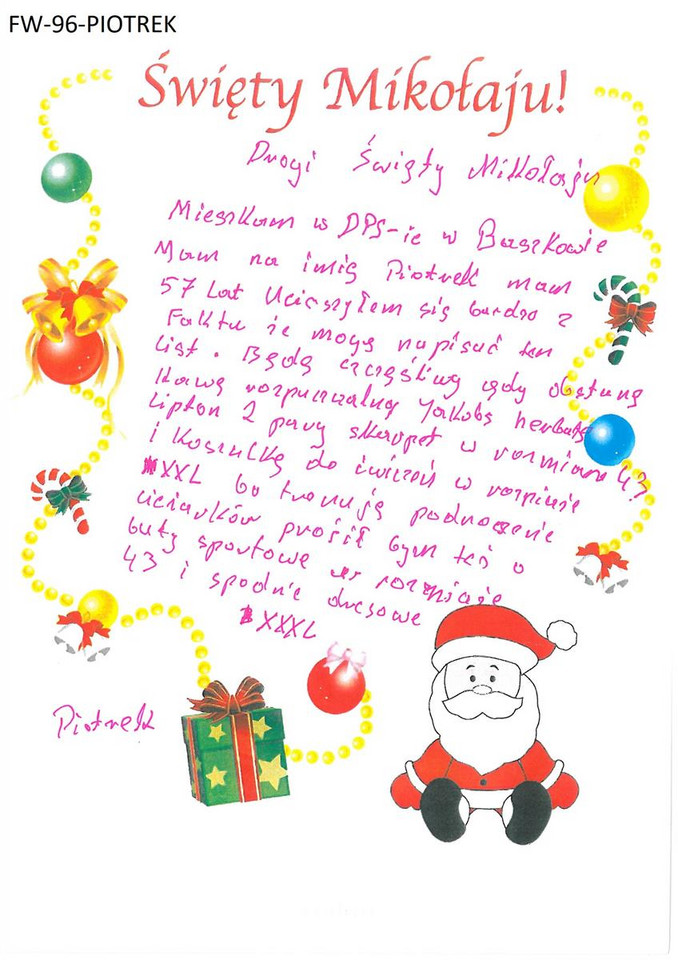 FW-96-PIOTREK
Święty Mikołaju!
Drogi Święty Mikołaju
Mieszkam w DPS-ie w Baszkowie
Mam na imię Piotrek mam
57 Lat Ucieszyłem się bardzo z
Faktu że mogę napisać ten
List. Będę szczęśliwy gdy dostanę
Kawę rozpuszczalną Jakobs herbatę
Lipton 2 pary skarpet w rozmiarze 43
i Koszulkę do ćwiczeń w rozmiarze
XXL bo trenuję podnoszenie
ciężarków prosił bym też o
buty sportowe w rozmiaże
43 i spodnie dresowe
XXXL
Piotrek